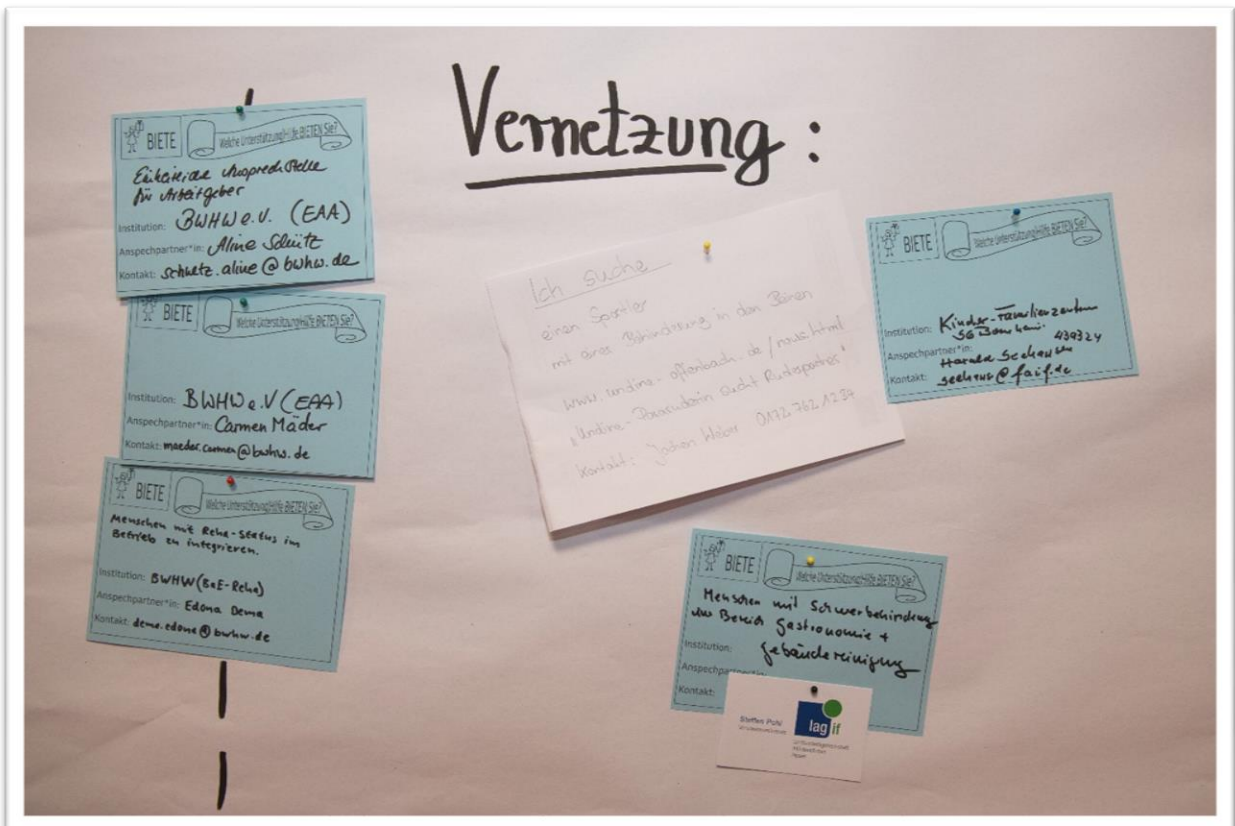 Vernetzung :
BIETE
Welche Unterstützung/Hilfe BIETEN Sie?
Einheitliche Ansprechstelle
für Arbeitgeber
Institution: BWHW e.V. (EAA)
Anspechpartner*in: Aline Schütz
Kontakt: schuetz.aline@bwhw.de
BIETE
Welche Unterstützung/Hilfe BIETEN Sie?
Institution: BWHW e.V (EAA)
Anspechpartner*in: Carmen Mäder
Kontakt: maeder.carmen@bwhw.de
BIETE
Welche Unterstützung/Hilfe BIETEN Sie?
Menschen mit Reha-Status im
Betrieb zu integrieren.
Institution: BWHW (BaE-Reha)
Anspechpartner*in: Edona Dema
Kontakt: dema.edona@bwhw.de
Ich suche
einen Sportler
mit einer Behinderung in den Beinen
www.undine-offenbach.de/news.html
"Undine-Pararuderin sucht Ruderpartner"
Kontakt: Jochen Weber 0172 762 1237
BIETE
Welche Unterstützung/Hilfe BIETEN Sie?
Institution: Kinder-Familienzentrum
SG Bornheim
439324
Anspechpartner*in: Harald Seehausen
Kontakt: seehaus@faif.de
BIETE
Welche Unterstützung/Hilfe BIETEN Sie?
Menschen mit Schwerbehinderung
im Bereich Gastronomie +
Institution: Gebäudereinigung
Kontakt:
Steffen Pohl
lag if